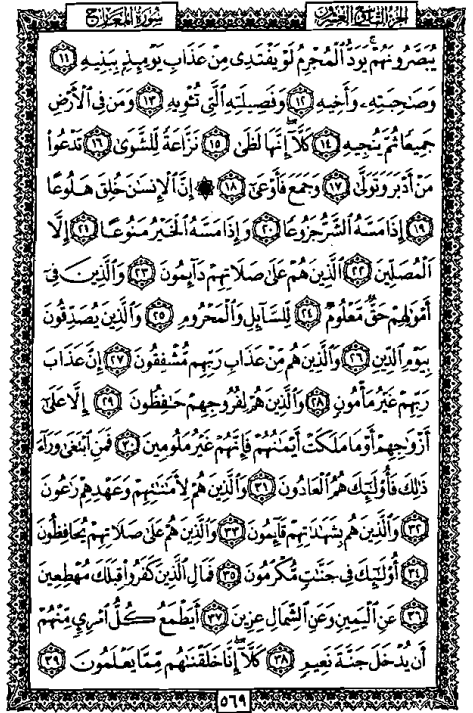 الجزء التاسع والعشرون سورة المعارج
يُبَصَّرُونَهُمْ ۚ يَوَدُّ ٱلْمُجْرِمُ لَوْ يَفْتَدِى مِنْ عَذَابِ يَوْمِئِذٍۭ بِبَنِيهِ ١١
وَصَٰحِبَتِهِۦ وَأَخِيهِ ١٢ وَفَصِيلَتِهِ ٱلَّتِى تُـْٔوِيهِ ١٣ وَمَن فِى ٱلْأَرْضِ
جَمِيعًا ثُمَّ يُنجِيهِ ١٤ كَلَّآ ۖ إِنَّهَا لَظَىٰ ١٥ نَزَّاعَةً لِّلشَّوَىٰ ١٦ تَدْعُوا۟
مَنْ أَدْبَرَ وَتَوَلَّىٰ ١٧ وَجَمَعَ فَأَوْعَىٰٓ ١٨ ۞ إِنَّ ٱلْإِنسَٰنَ خُلِقَ هَلُوعًا
١٩ إِذَا مَسَّهُ ٱلشَّرُّ جَزُوعًا ٢٠ وَإِذَا مَسَّهُ ٱلْخَيْرُ مَنُوعًا ٢١ إِلَّا
ٱلْمُصَلِّينَ ٢٢ ٱلَّذِينَ هُمْ عَلَىٰ صَلَاتِهِمْ دَآئِمُونَ ٢٣ وَٱلَّذِينَ فِىٓ
أَمْوَٰلِهِمْ حَقٌّ مَّعْلُومٌ ٢٤ لِّلسَّآئِلِ وَٱلْمَحْرُومِ ٢٥ وَٱلَّذِينَ يُصَدِّقُونَ
بِيَوْمِ ٱلدِّينِ ٢٦ وَٱلَّذِينَ هُم مِّنْ عَذَابِ رَبِّهِم مُّشْفِقُونَ ٢٧ إِنَّ عَذَابَ
رَبِّهِمْ غَيْرُ مَأْمُونٍ ٢٨ وَٱلَّذِينَ هُمْ لِفُرُوجِهِمْ حَٰفِظُونَ ٢٩ إِلَّا عَلَىٰٓ
أَزْوَٰجِهِمْ أَوْ مَا مَلَكَتْ أَيْمَٰنُهُمْ فَإِنَّهُمْ غَيْرُ مَلُومِينَ ٣٠ فَمَنِ ٱبْتَغَىٰ وَرَآءَ
ذَٰلِكَ فَأُو۟لَٰٓئِكَ هُمُ ٱلْعَادُونَ ٣١ وَٱلَّذِينَ هُمْ لِأَمَٰنَٰتِهِمْ وَعَهْدِهِمْ رَٰعُونَ
٣٢ وَٱلَّذِينَ هُم بِشَهَٰدَٰتِهِمْ قَآئِمُونَ ٣٣ وَٱلَّذِينَ هُمْ عَلَىٰ صَلَاتِهِمْ يُحَافِظُونَ
٣٤ أُو۟لَٰٓئِكَ فِى جَنَّٰتٍ مُّكْرَمُونَ ٣٥ فَمَالِ ٱلَّذِينَ كَفَرُوا۟ قِبَلَكَ مُهْطِعِينَ
٣٦ عَنِ ٱلْيَمِينِ وَعَنِ ٱلشِّمَالِ عِزِينَ ٣٧ أَيَطْمَعُ كُلُّ ٱمْرِئٍ مِّنْهُمْ
أَن يُدْخَلَ جَنَّةَ نَعِيمٍ ٣٨ كَلَّآ ۖ إِنَّا خَلَقْنَٰهُم مِّمَّا يَعْلَمُونَ ٣٩
٥٦٩